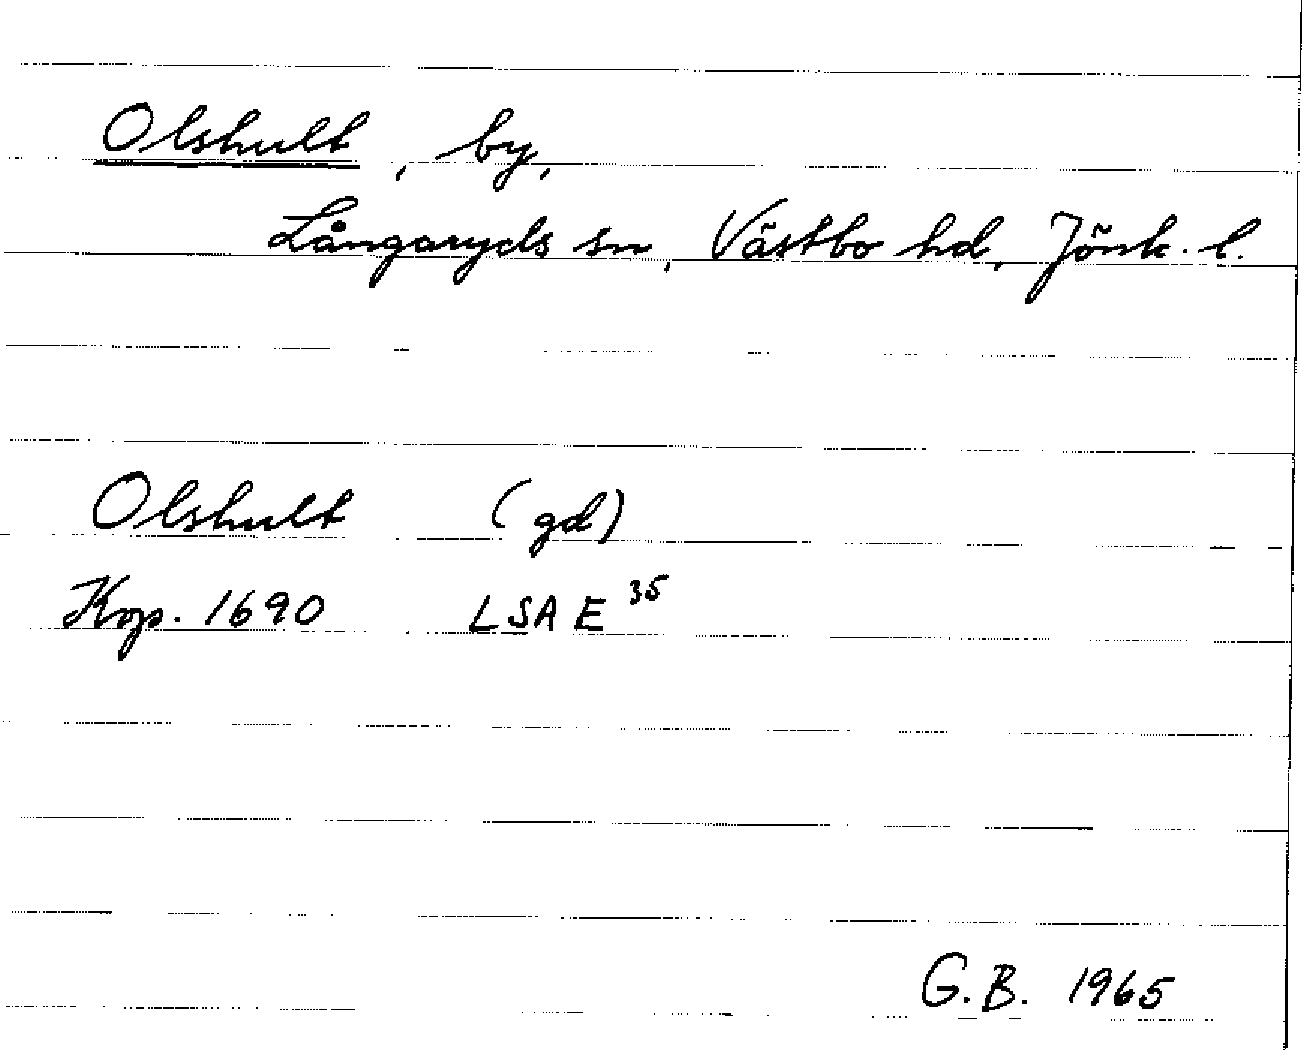 Olshult, by,
Långaryds sn, Västbo hd, Jönk. l.
Olshult (gd)
Kop. 1690 LSA E 35
G.B. 1965